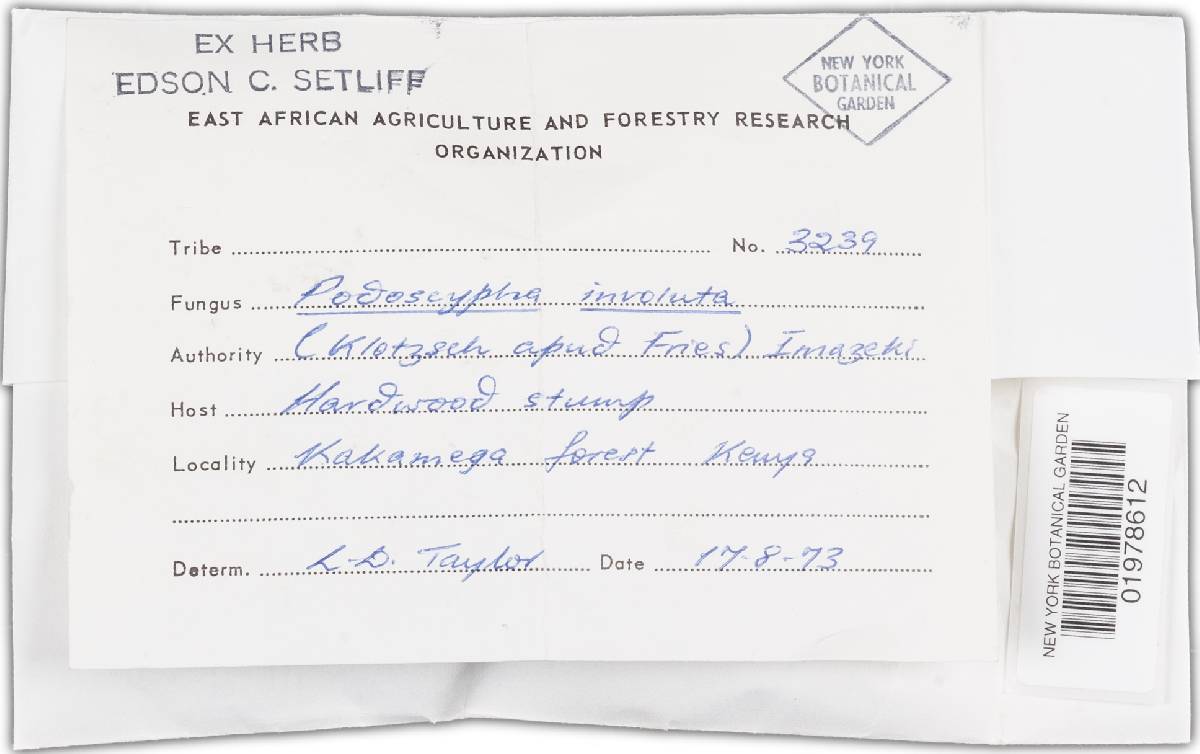 EX HERB
EDSON C. SETLIFF
NEW YORK
BOTANICAL
GARDEN
EAST AFRICAN AGRICULTURE AND FORESTRY RESEARCH
ORGANIZATION
Tribe No. 3239
Fungus Podoscypha involuta
Authority (Klotzsch apud Fries) Imazeki
Host Hardwood stump
Locality Kakamega forest Kenya
Determ. L.D. Taylor Date 17-8-73
NEW YORK BOTANICAL GARDEN
01978612